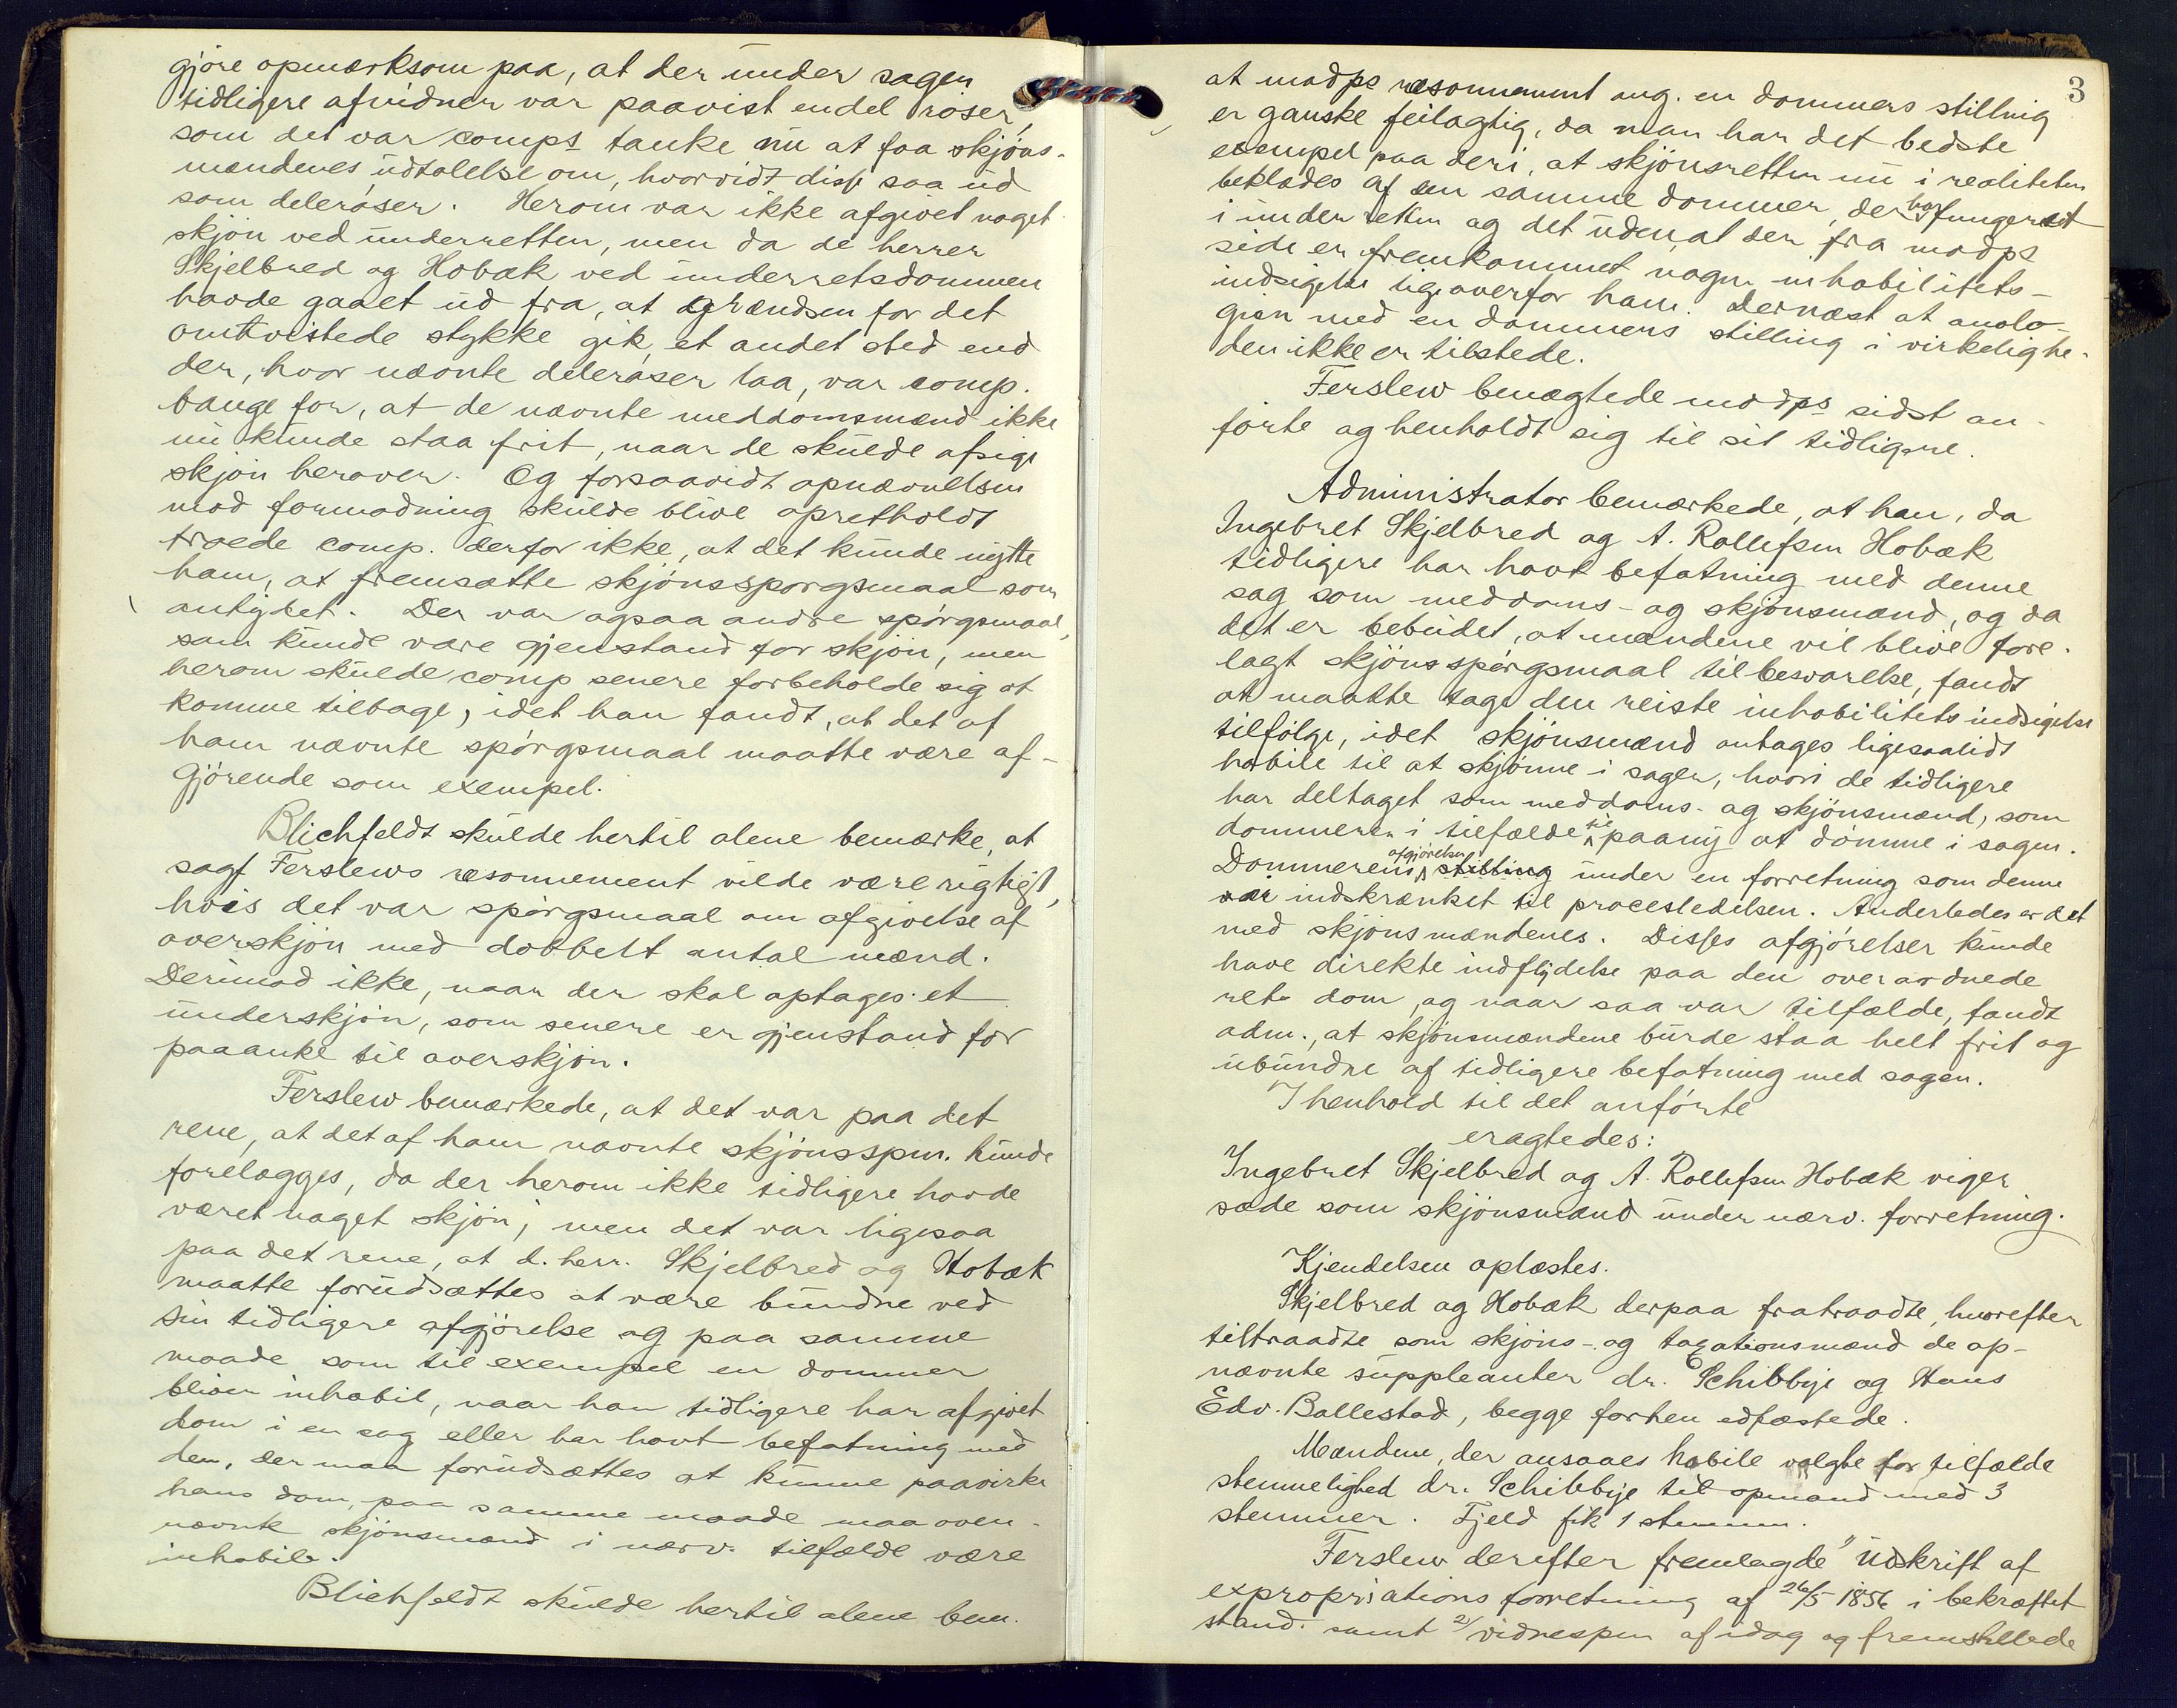 gjöre opmærksom paa, at der under sagen
tidligere afvidner var paavist endel röser,
som det var comps tanke nu at faa skjöns-
mændenes udtalelse om, hvorvidt disse saa ud
som deleröser. Herom var ikke afgivet noget
skjön ved underretten, men da de herrer
Skjelbred og Hobæk ved underretsdommen
havde gaaet ud fra, at grændsen for det
omtvistede stykke gik et andet sted end
der, hvor nævnte deleröser laa, var comp.
bange for, at de nævnte meddomsmænd ikke
nu kunde staa frit, naar de skulde afsige
skjön herover. Og forsaavidt opnævnelsen
mod formodning skulde blive opretholdt
troede comp. derfor ikke, at det kunde nytte
ham, at fremsætte skjönsspørgsmaal som
antydet. Der var ogsaa andre spörgsmaal,
som kunde være gjenstand for skjön, men
herom skulde comp senere forbeholde sig at
komme tilbage, idet han fandt, at det af
ham nævnte spörgsmaal maatte være af-
gjörende som exempel.
Blichfeldt skulde hertil alene bemærke, at
sagf Ferslews ræsonnement vilde være rigtigt,
hvis det var spörgsmaal om afgivelse af
overskjön med dobbelt antal mænd.
Derimod ikke, naar der skal optages et
underskjön, som senere er gjenstand for
paaanke til overskjön.
Ferslew bemærkede, at det var paa det
rene, at det af ham nævnte skjönsspm. kunde
forelægges, da der herom ikke tidligere havde
været noget skjön; men det var ligesaa
paa det rene, at d. herr. Skjelbred og Hobæk
maatte forudsættes at være bundne ved
sin tidligere afgjörelse og paa samme
maade som til exempel en dommer
bliver inhabil, naar han tidligere har afgivet
dom i en sag eller har havt befatning med
den, der maa forudsættes at kunne paavirke
hans dom, paa samme maade maa oven-
nævnte skjönsmænd i nærv. tilfælde være
inhabile.
Blichfeldt skulde hertil alene bem.
3
at modps ræsonnement ang. en dommers stilling
er ganske feilagtig, da man har det bedste
exempel paa deri, at skjönsretten nu i realiteten
beklædes af den samme dommer, der har fungeret
i underretten og det uden, at der fra modps
side er fremkommet nogen inhabilitets-
indsigelse ligeoverfor ham. Dernæst at analo-
gien med en dommers stilling i virkelighe-
den ikke er tilstede.
Ferslew benægtede modps sidst an-
förte og henholdt sig til sit tidligere.
Administrator bemærkede, at han, da
Ingebret Skjelbred og A. Rollefsen Hobæk
tidligere har havt befatning med denne
sag som meddoms- og skjönsmænd, og da
det er bebudet, at mændene vil blive fore-
lagt skjönsspörgsmaal til besvarelse, fandt
at maatte tage den reiste inhabilitetsindsigelse
tilfölge, idet skjönsmænd antages ligesaalidt
habile til at skjönne i sagen, hvori de tidligere
har deltaget som meddoms- og skjönsmænd, som
dommeren i tilfælde til paany at dömme i sagen.
Dommerens afgjörelser stilling under en forretning som denne
var indskrænket til procesledelsen. Anderledes er det
med skjönsmændenes. Disses afgjörelser kunde
have direkte indflydelse paa den overordnede
rets dom, og naar saa var tilfælde, fandt
adm., at skjönsmændene burde staa helt frit og
ubundne af tidligere befatning med sagen.
I henhold til det anförte
eragtedes:
Ingebret Skjelbred og A. Rollefsen Hobæk viger
sæde som skjönsmænd under nærv. forretning.
Kjendelsen oplæstes.
Skjelbred og Hobæk derpaa fratraadte, hvorefter
tiltraadte som skjöns- og taxationsmænd de op-
nævnte suppleanter dr. Schibbye og Hans
Edv. Ballestad, begge forhen edfæstede.
Mændene, der ansaaes habile valgte for tilfælde
stemmelighed dr. Schibbye til opmand med 3
stemmer. Fjeld fik 1 stemme.
Ferslew derefter fremlagde 1) Udskrift af
expropriationsforretning af 26/5 1856 i bekræftet
stand. samt 2) vidnespm af idag og fremstillede